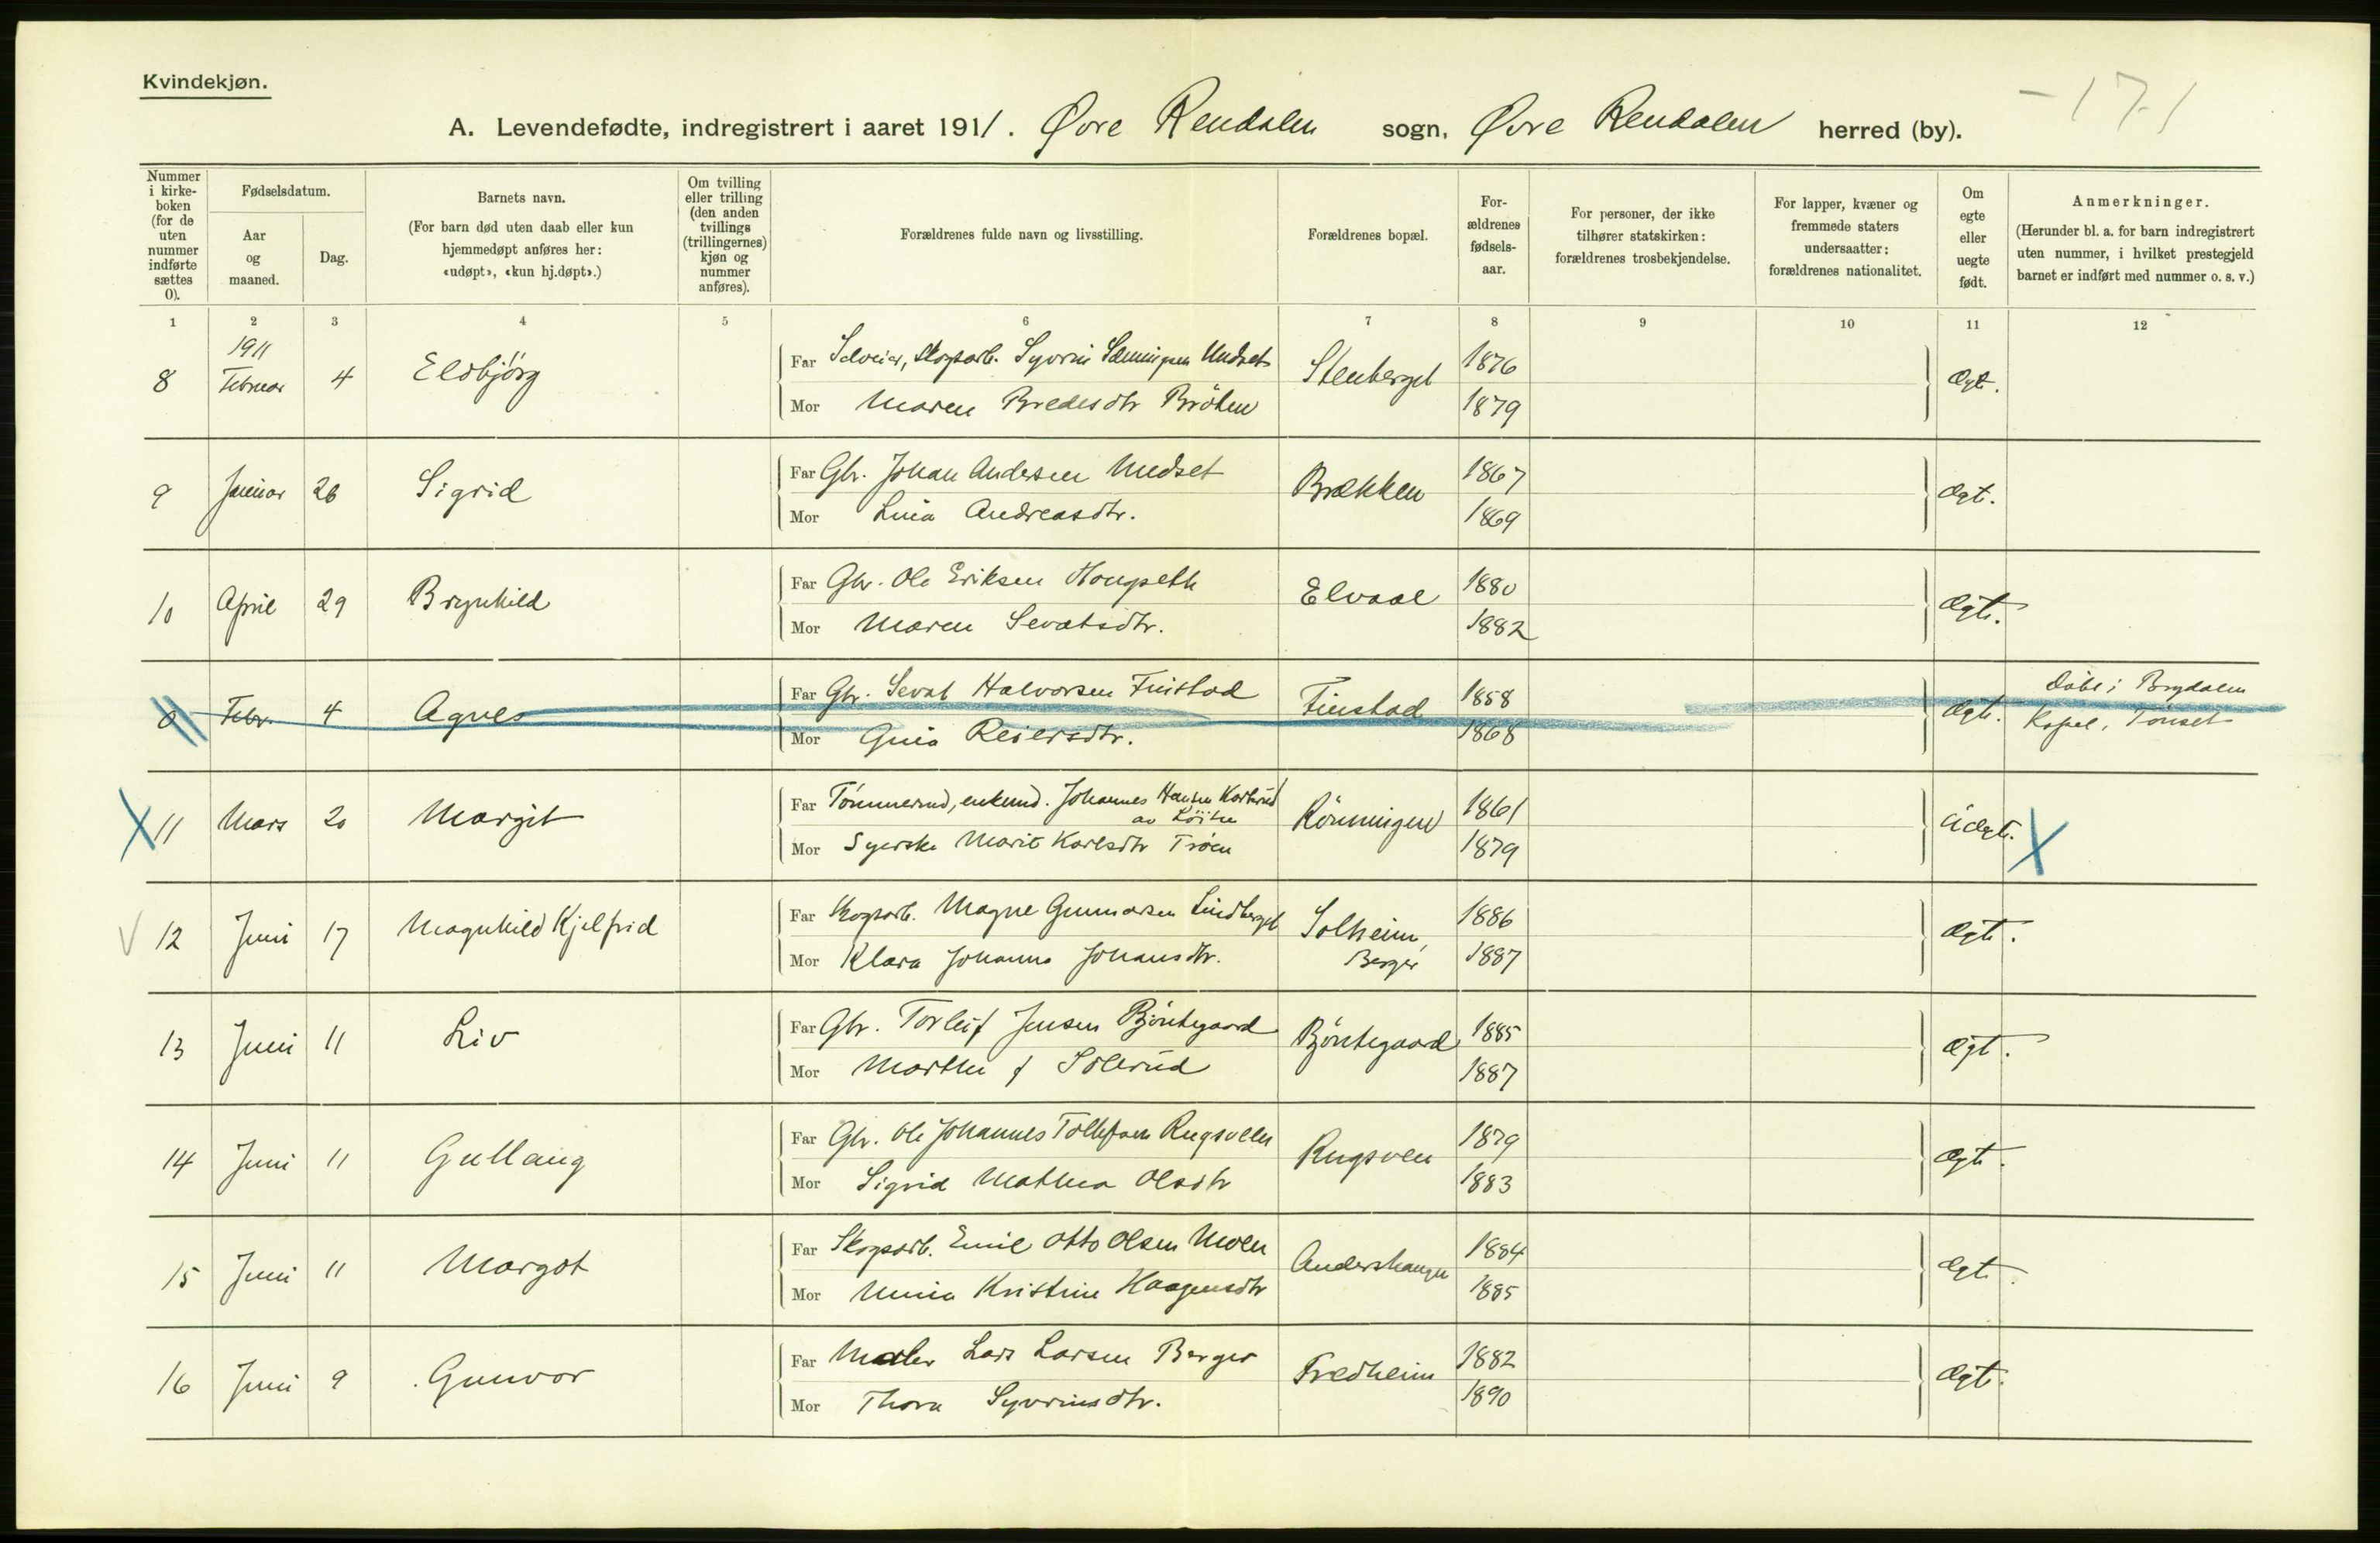 Kvindekjøn.
A. Levendefødte, indregistrert i aaret 1911. Øvre Rendalen sogn, Øvre Rendalen herred (by).
-171
Nummer i kirke-boken (for de uten nummer indførte sættes 0).
Fødselsdatum.
Aar og maaned.
Dag.
Barnets navn.
(For barn død uten daab eller kun hjemmedøpt anføres her: «udøpt», «kun hj.døpt».)
Om tvilling eller trilling (den anden tvillings (trillingernes) kjøn og nummer anføres).
Forældrenes fulde navn og livsstilling.
Forældrenes bopæl.
For-ældrenes fødsels-aar.
For personer, der ikke tilhører statskirken: forældrenes trosbekjendelse.
For lapper, kvæner og fremmede staters undersaatter: forældrenes nationalitet.
Om egte eller uegte født.
Anmerkninger.
(Herunder bl. a. for barn indregistrert uten nummer, i hvilket prestegjeld barnet er indført med nummer o. s. v.)
1 2 3 4 5 6 7 8 9 10 11 12
1911
8 Februar 4 Elsbjörg Far Selveier, skogsarb. Syver Undset Stenberget 1876 ægte.
Mor Maren Bredesdtr Bråten 1879
9 Januar 26 Sigrid Far Gbr. Johan Andersen Undset Brækken 1867 ægte.
Mor Lina Andreasdtr. 1869
10 April 29 Brynhild Far Gbr. Ole Eriksen Haugseth Elvaal 1880 ægte.
Mor Maren Sevatsdtr. 1882
0 Febr. 4 Agnes Far Gbr. Sevat Halvorsen Finstad Finstad 1858 ægte. Døbt i Brydalen
Mor Gina Reiersdtr. 1868 Kapel, Tönset
X 11 Mars 20 Margit Far Tömmermd, enkemd. Johannes Hansen Rönningen 1861 uægte. X
av Löiten
Mor Syerske Marit Karlsdtr Tröen 1879
V 12 Juni 17 Magnhild Kjelfrid Far Skogsarb. Magne Gunnarsen Lindberget Solheim, 1886 ægte.
Mor Klara Johanne Johansdtr. Berger 1887
13 Juni 11 Liv Far Gbr. Torleif Jensen Björntegaard Björntegaard 1885 ægte.
Mor Marthe f Sölerud 1887
14 Juni 11 Gullaug Far Gbr. Ole Johannes Tollefsen Rugsveen Rugsveen 1879 ægte.
Mor Sigrid Mathea Olsdtr 1883
15 Juni 11 Margot Far Skogsarb. Emil Otto Olsen Moen Andershaugen 1884 ægte.
Mor Kristine Haagensdtr 1885
16 Juni 9 Gunvor Far Maler Lars Larsen Berger Fredheim 1882 ægte.
Mor Thora Syverinsdtr. 1890